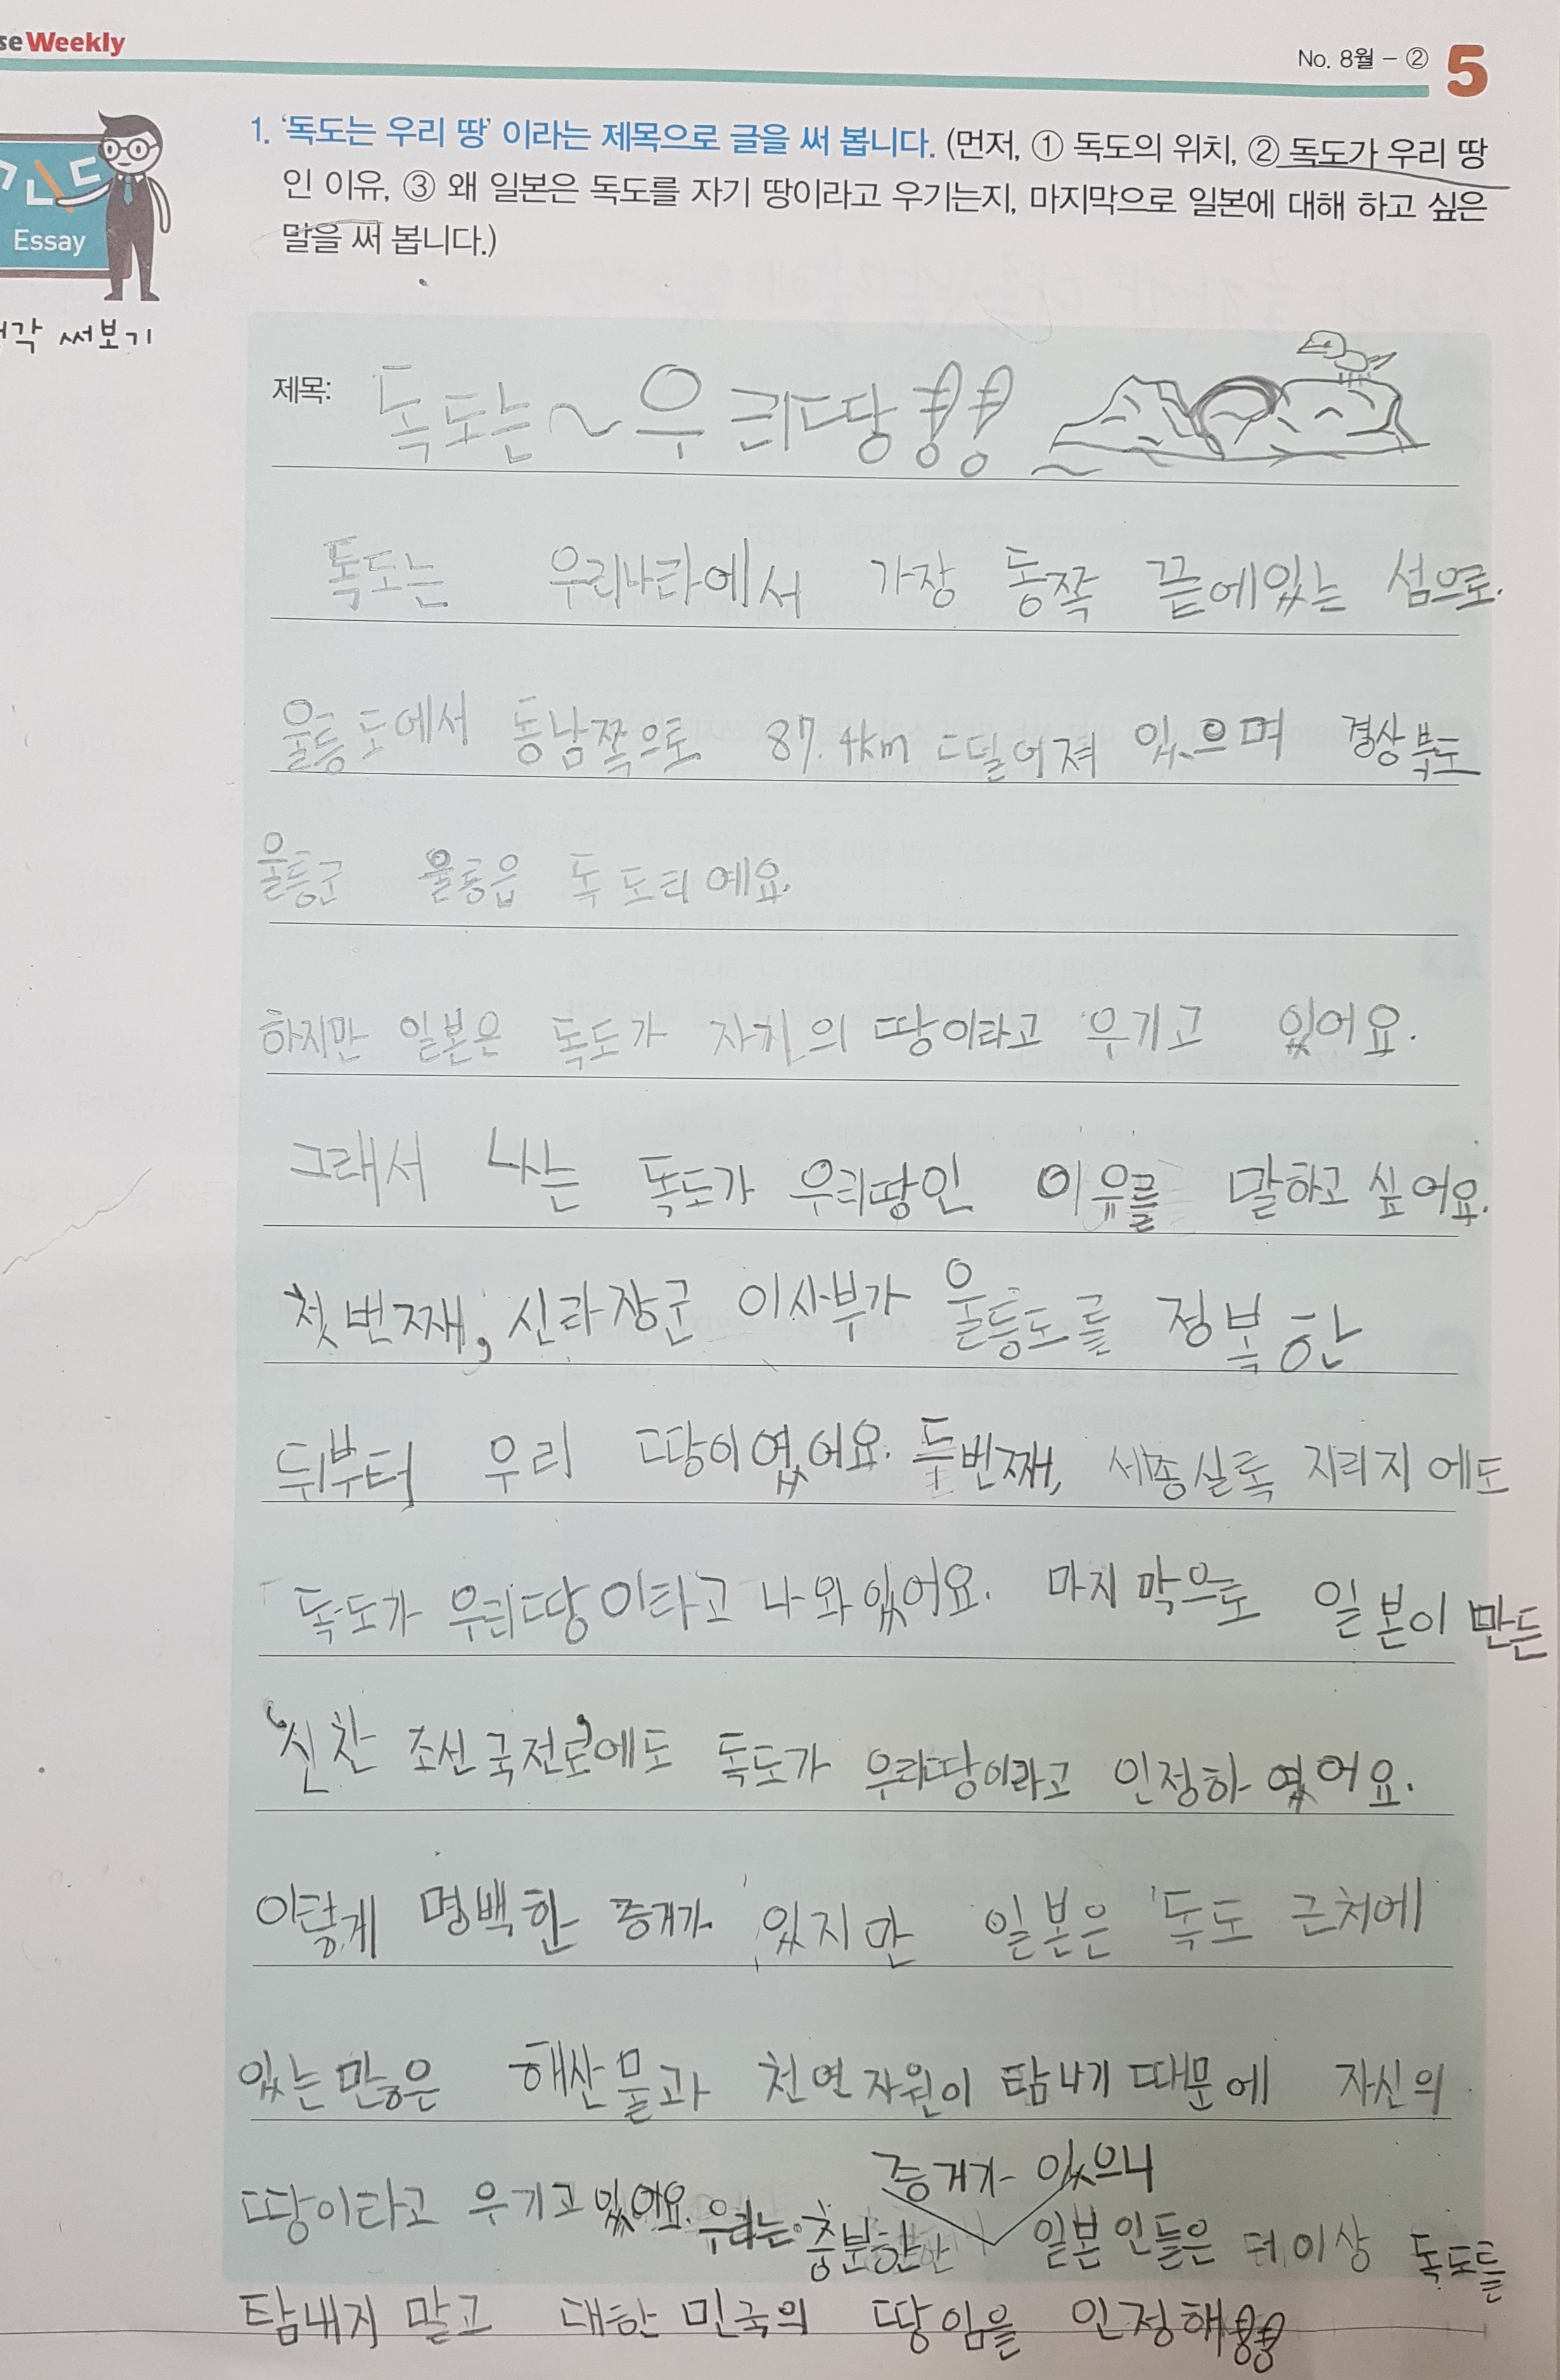 se Weekly
No. 8월 - ② 5
1. '독도는 우리 땅' 이라는 제목으로 글을 써 봅니다. (먼저, ① 독도의 위치, ② 독도가 우리 땅
인 이유, ③ 왜 일본은 독도를 자기 땅이라고 우기는지, 마지막으로 일본에 대해 하고 싶은
말을 써 봅니다.)
Essay
각 써보기
제목: 독도는~우리땅!!
독도는 우리나라에서 가장 동쪽 끝에있는 섬으로.
울릉도에서 동남쪽으로 87.4km 떨어져 있으며 경상북도
울릉군 울릉읍 독도리예요.
하지만 일본은 독도가 자기의 땅이라고 우기고 있어요.
그래서 나는 독도가 우리땅인 이유를 말하고 싶어요.
첫번째, 신라장군 이사부가 울릉도를 정복한
뒤부터 우리 땅이였어요. 두번째, 세종실록 지리지에도
독도가 우리땅이라고 나와있어요. 마지막으로 일본이 만든
'신찬 조선국전로'에도 독도가 우리땅이라고 인정하였어요.
이렇게 명백한 증거가 있지만 일본은 독도 근처에
있는 많은 해산물과 천연자원이 탐나기 때문에 자신의
땅이라고 우기고 있어요. 우리는 충분한 증거가 있으니 일본인들은 더이상 독도를
탐내지 말고 대한민국의 땅임을 인정해!!